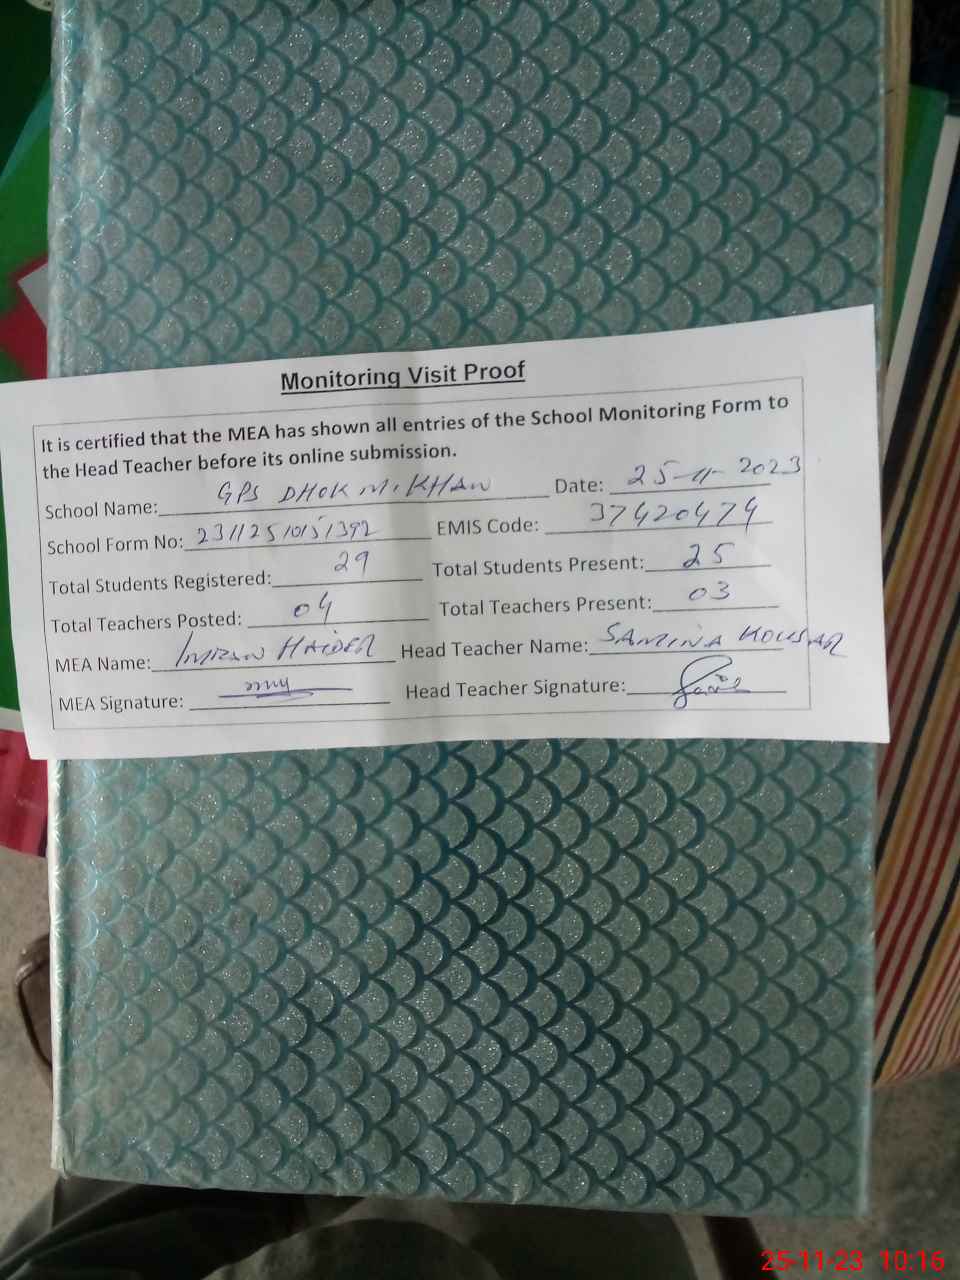 Monitoring Visit Proof
It is certified that the MEA has shown all entries of the School Monitoring Form to
the Head Teacher before its online submission.
School Name: GPS DHOK M. KHAN Date: 25-11-2023
School Form No: 23112510151392 EMIS Code: 37420474
Total Students Registered: 29 Total Students Present: 25
Total Teachers Posted: 04 Total Teachers Present: 03
MEA Name: IMRAN HAIDER Head Teacher Name: SAMINA KOUSAR
MEA Signature: Head Teacher Signature:
25-11-23 10:16